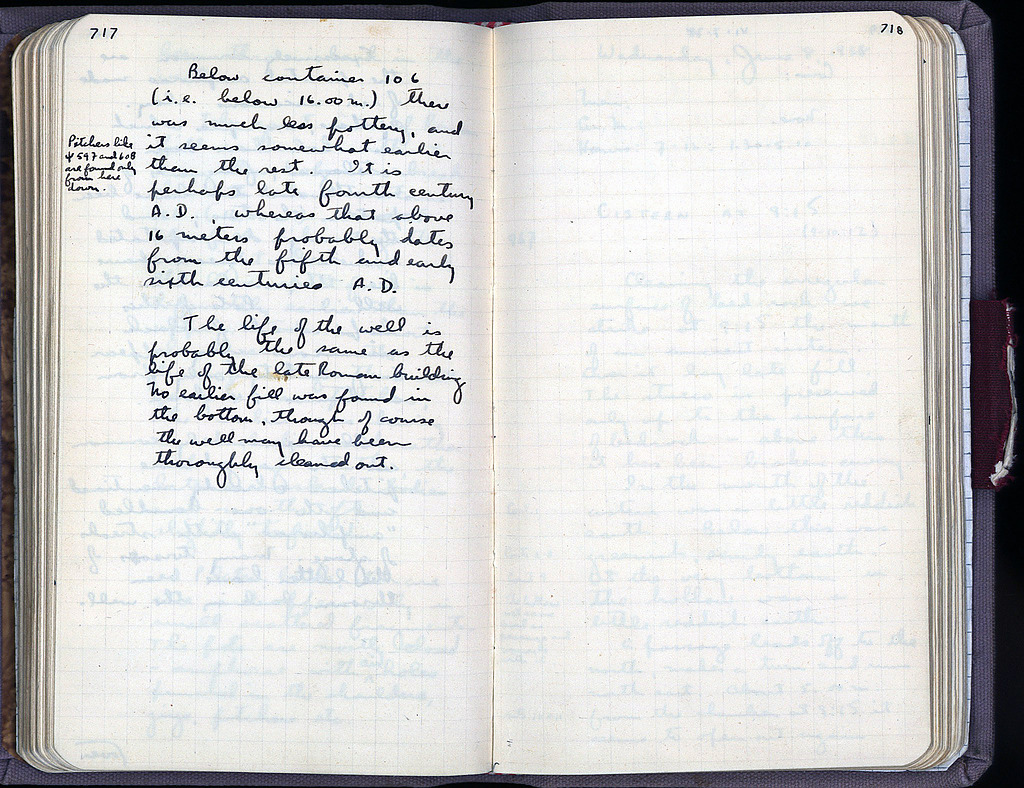 717
Below container 106
(i.e. below 16.00m.) there
was much less pottery, and
it seems somewhat earlier
than the rest. It is
perhaps late fourth century
A.D., whereas that above
16 meters probably dates
from the fifth and early
sixth centuries A.D.
Pitchers like
ψ 597 and 608
are found only
from here
down.
The life of the well is
probably the same as the
life of the late Roman building
No earlier fill was found in
the bottom, though of course
the well may have been
thoroughly cleaned out.
718